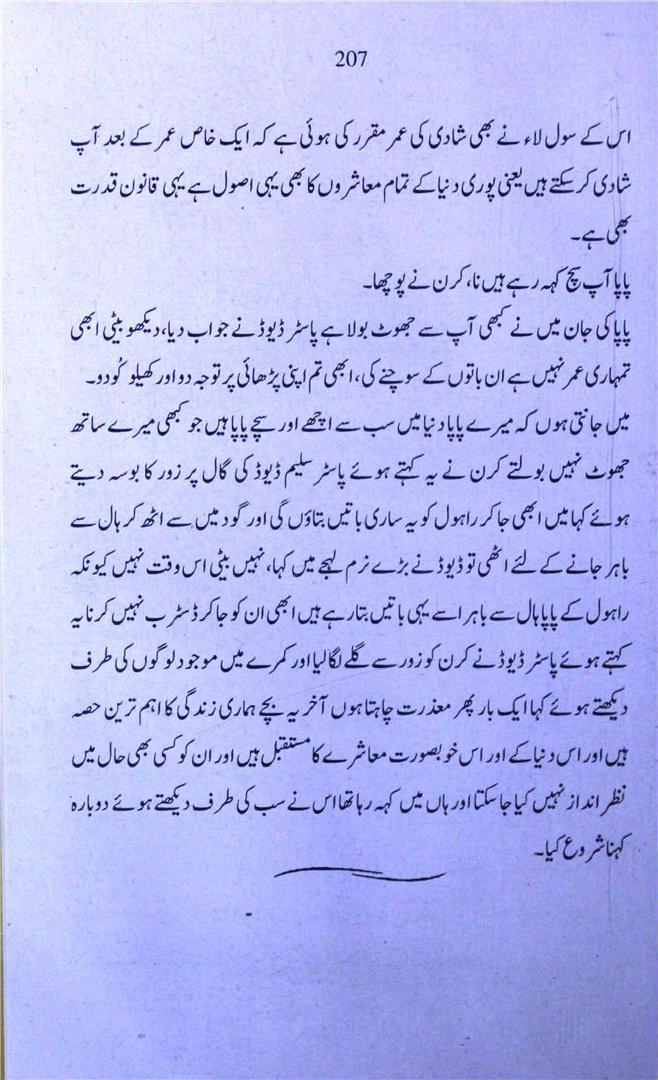 207
اس کے سول لاء نے بھی شادی کی عمر مقرر کی ہوئی ہے کہ ایک خاص عمر کے بعد آپ
شادی کر سکتے ہیں یعنی پوری دنیا کے تمام معاشروں کا بھی یہی اصول ہے یہی قانون قدرت
بھی ہے۔
پاپا آپ سچ کہہ رہے ہیں نا، کرن نے پوچھا۔
پاپا کی جان میں نے کبھی آپ سے جھوٹ بولا ہے پاسٹر ڈیوڈ نے جواب دیا، دیکھو بیٹی ابھی
تمہاری عمر نہیں ہے ان باتوں کے سوچنے کی، ابھی تم اپنی پڑھائی پر توجہ دو اور کھیلو کُودو۔
میں جانتی ہوں کہ میرے پاپا دنیا میں سب سے اچھے اور سچے پاپا ہیں جو کبھی میرے ساتھ
جھوٹ نہیں بولتے کرن نے یہ کہتے ہوئے پاسٹر سلیم ڈیوڈ کی گال پر زور کا بوسہ دیتے
ہوئے کہا میں ابھی جا کر راہول کو یہ ساری باتیں بتاؤں گی اور گود میں سے اٹھ کر ہال سے
باہر جانے کے لئے اٹھی تو ڈیوڈ نے بڑے نرم لہجے میں کہا، نہیں بیٹی اس وقت نہیں کیونکہ
راہول کے پاپا ہال سے باہر اسے یہی باتیں بتا رہے ہیں ابھی ان کو جا کر ڈسٹرب نہیں کرنا یہ
کہتے ہوئے پاسٹر ڈیوڈ نے کرن کو زور سے گلے لگا لیا اور کمرے میں موجود لوگوں کی طرف
دیکھتے ہوئے کہا ایک بار پھر معذرت چاہتا ہوں آخر یہ بچے ہماری زندگی کا اہم ترین حصہ
ہیں اور اس دنیا کے اور اس خوبصورت معاشرے کا مستقبل ہیں اور ان کو کسی بھی حال میں
نظر انداز نہیں کیا جا سکتا اور ہاں میں کہہ رہا تھا اس نے سب کی طرف دیکھتے ہوئے دوبارہ
کہنا شروع کیا۔